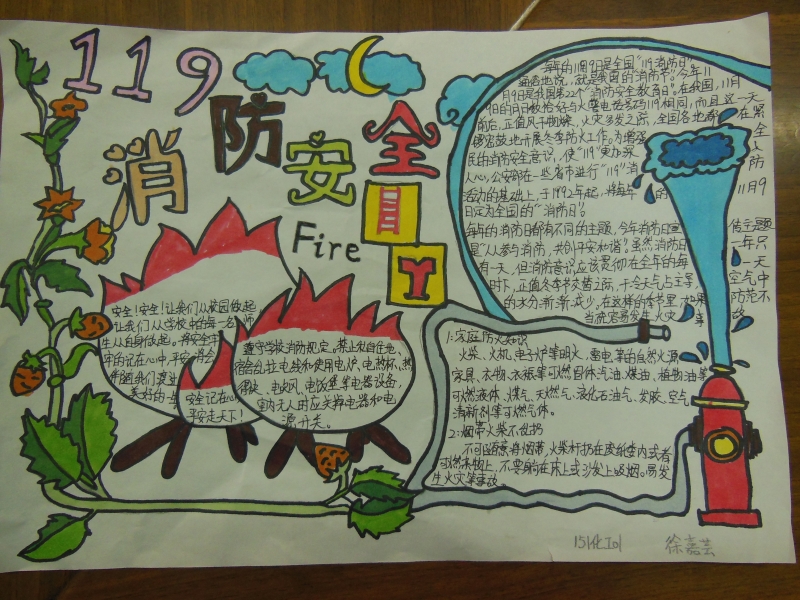 119
消防安全
Fire
每年的11月9日是全国"119消防日"
通俗地说，就是我国的消防节。今年11
月9日是我国第22个"消防安全教育日"。在我国，11月
9日的月日数恰好与火警电话号码119相同，而且这一天
前后，正值风干物燥、火灾多发之际，全国各地都在紧
锣密鼓地开展冬季防火工作。为增强全
民的消防安全意识，使"119"更加深
人心，公安部在一些省市进行"119"消防
活动的基础上，于1992年起，将每年的11月9
日定为全国的"消防日"。
每年的消防日都有不同的主题，今年消防日宣传主题
是"人人参与消防，共创平安和谐"。虽然消防日一年只
有一天，但消防意识应该贯彻在全年的每一天
时下，正值冬季火灾 之际，干冷天气占主导，空气中
的水分渐渐减少，在这样的季节里，如果防范不
当就容易发生火灾
安全！安全！让我们从校园做起
让我们从学校中的每一名师
生从自身做起。将安全
牢的记在心中，平安将会
伴随我们
美好的一
安全记在心
平安走天下！
遵守学校消防规定。禁止私自在
宿舍乱拉电线和使用电炉、电热杯、热
得快、电吹风、电饭煲等电器设备，
室内无人时应关掉电器和电
源开关。
1：家庭防火知识
火柴、火机、电子炉等明火、雷电等的自然火源
家具、衣物、衣被等可燃固体汽油、煤油、植物油等
可燃液体，煤气、天燃气、液化石油气、发胶、空气
清新剂等可燃气体。
2：烟蒂火柴不乱扔
不可随意将烟蒂，火柴杆扔在废纸篓内或者
可燃杂物上，不要躺在床上或沙发上吸烟。易发
生火灾等事故。
徐嘉芸